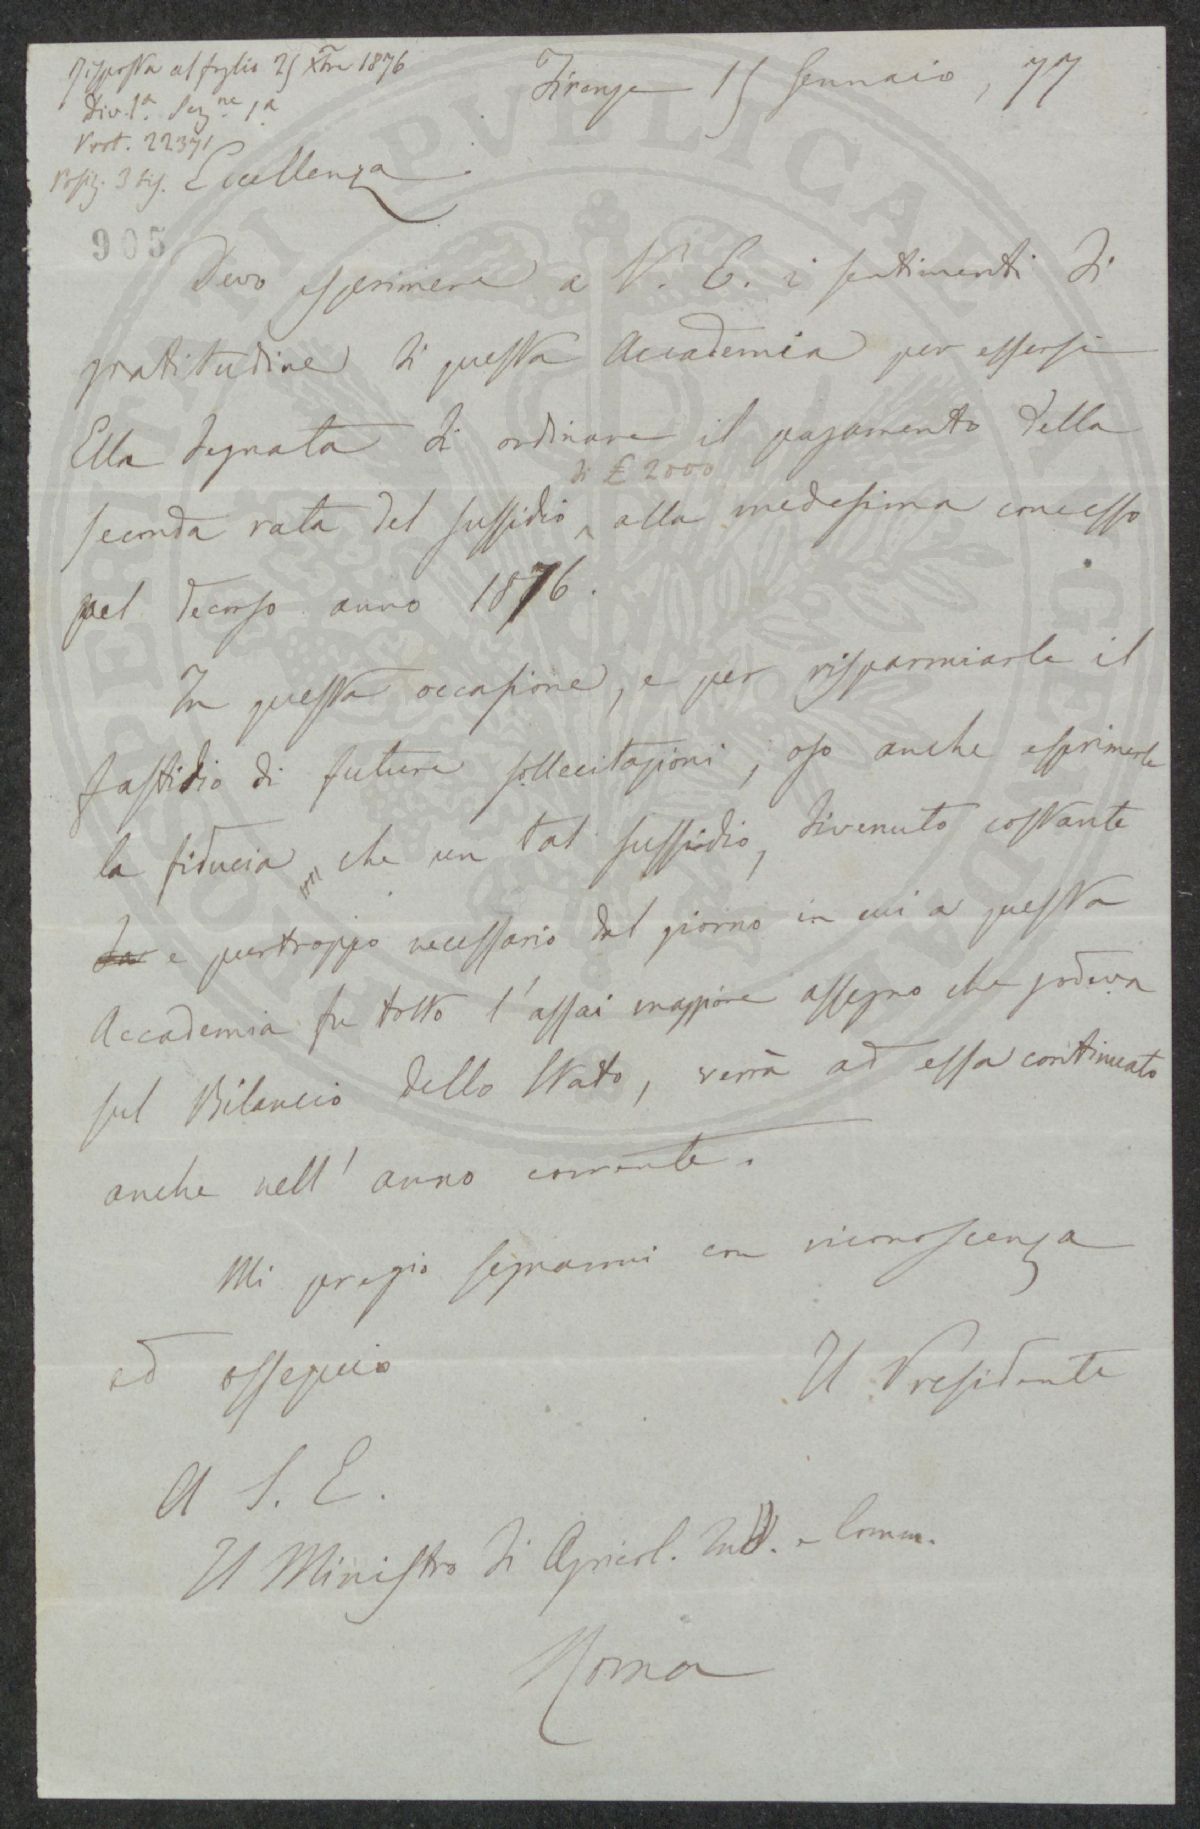 Risposta al foglio 25 Xbre 1876
Div. 1ª. Sezne 1ª
Prot. 22371
Posiz. 3
905
Firenze 15 Gennaio, 77
Eccellenza
Devo esprimere a V. E. i sentimenti di
gratitudine di questa Accademia per essersi
Ella degnata di ordinare il pagamento della
di £ 2000
seconda rata del sussidio alla medesima concesso
pel decorso anno 1876.
In questa occasione, e per risparmiarle il
fastidio di future sollecitazioni, oso anche esprimerle
la fiducia che un tal sussidio, divenuto costante
e purtroppo necessario dal giorno in cui a questa
Accademia fu tolto l'assai maggiore assegno che godeva
sul Bilancio dello Stato, verrà ad essa continuato
anche nell'anno corrente.
Mi pregio segnarmi con riconoscenza
ed ossequio
Il Presidente
A S. E.
Il Ministro di Agricol. Ind. e Comm.
Roma